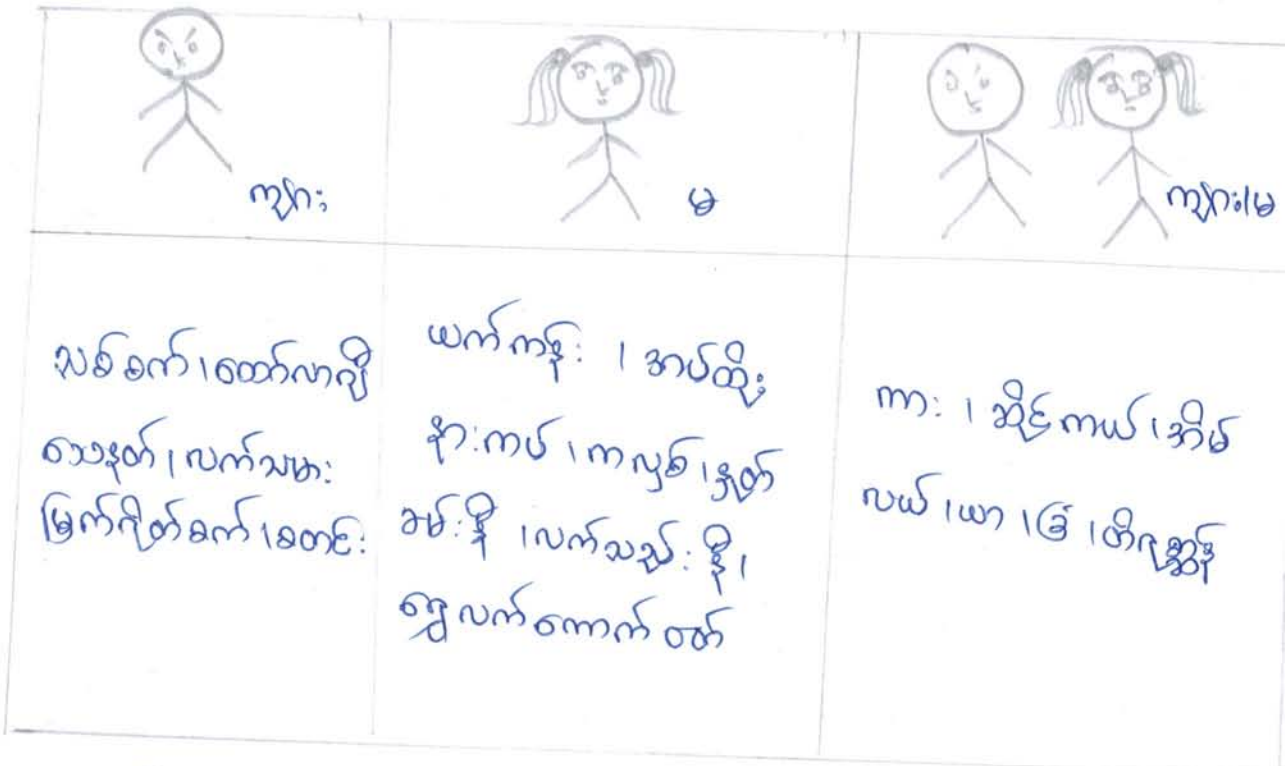 ကျား
မ
ကျား၊မ
သစ်စက်၊ထော်လာဂျီ
သေနတ်၊လက်သမား
မြက်ရိတ်စက်၊စတင်း
ယက်ကန်း ၊ အပ်ထိုး
နားကပ်၊ကလှစ်၊နှုတ်
ခမ်းနီ၊လက်သည်းနီ၊
ရွှေလက်ကောက်ဝတ်
ကား ၊ ဆိုင်ကယ်၊အိမ်
လယ်၊ယာ၊ခြံ၊တိရစ္ဆာန်